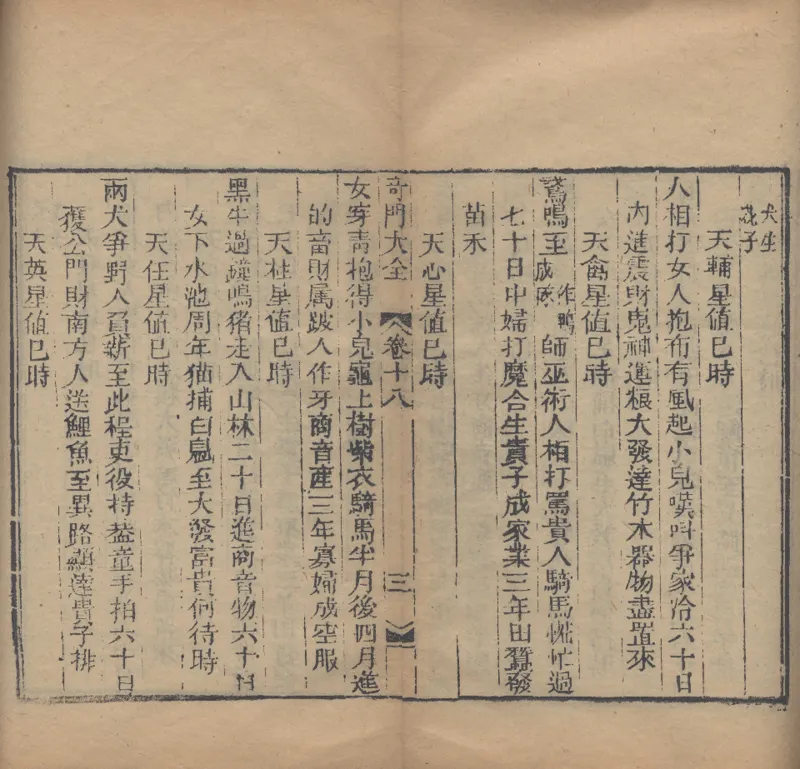 犬生
花子
天輔星値巳時
人相打女人抱布有風起小兒嘆叫爭家洽六十日
內進震財鬼神運粮大發達竹木器物盡置來
天禽星値巳時
鵞鳴至成群作鴨師巫術人相打罵貴人騎馬慌忙過
七十日中婦打魔合生貴子成家業三年田蠶發
苗禾
天心星値巳時
奇門大全 卷十八 三
女穿青抱得小兒龜上樹紫衣騎馬半月後四月進
的畜財属跛人作牙商音産三年寡婦成空服
天柱星値巳時
黑牛過鐘鳴猪走入山林二十日進商音物六十日
女下水池周年猫捕白鼠至大發富貴何待時
天任星値巳時
兩犬爭野人負薪至此程吏役持盖童手拍六十日
獲公門財南方人送鯉魚至異路顯達貴子排
天英星値巳時